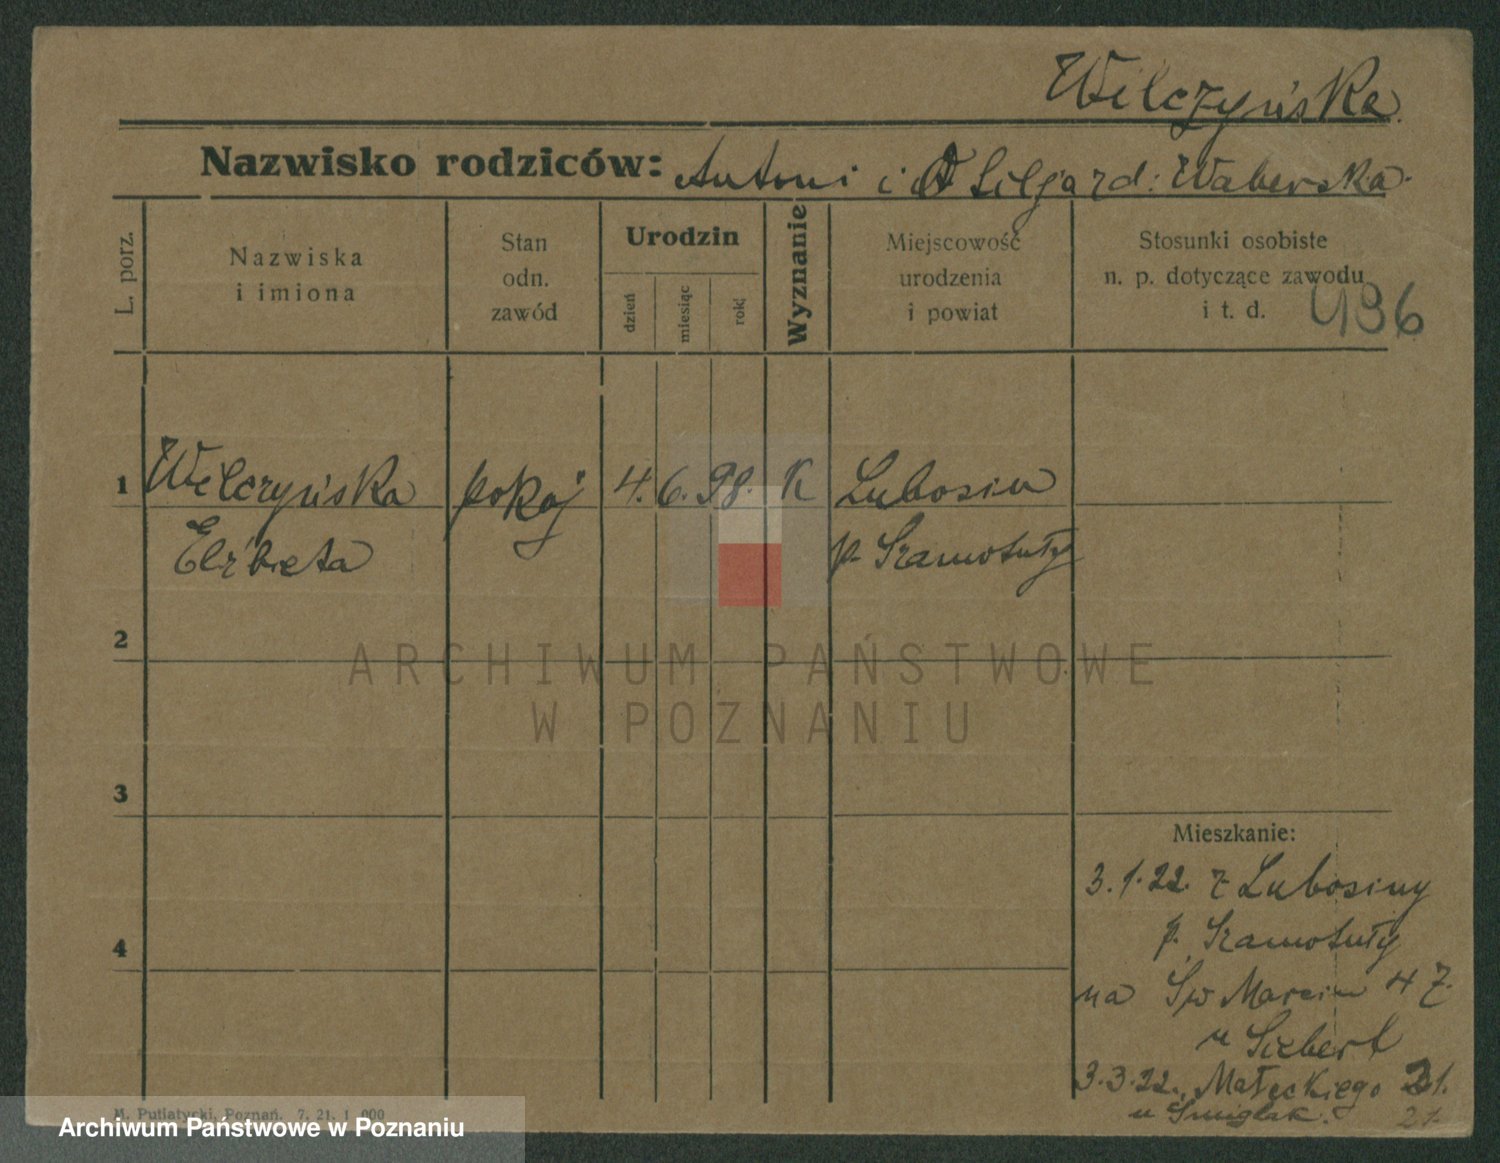 Wilczyńska
Nazwisko rodziców: Antoni i rd: Waberska
L. porz.
Nazwiska
i imiona
Stan
odn.
zawód
Urodzin
dzień
miesiąc
rok
Wyznanie
Miejscowość
urodzenia
i powiat
Stosunki osobiste
n. p. dotyczące zawodu
i t. d.
496
1 Wilczyńska pokoj 4. 6. 98. K Lubosin
Elżbieta p. Szamotuły
2
3
4
Mieszkanie:
3.1.22. z Lubosiny
p. Szamotuły
na Św Marcin 47.
u Siebert
3.3.22. Małeckiego 21.
u Śmiglak.
21.
M. Putiatycki, Poznań. 7, 21, 1 000
ARCHIWUM PAŃSTWOWE
W POZNANIU
Archiwum Państwowe w Poznaniu